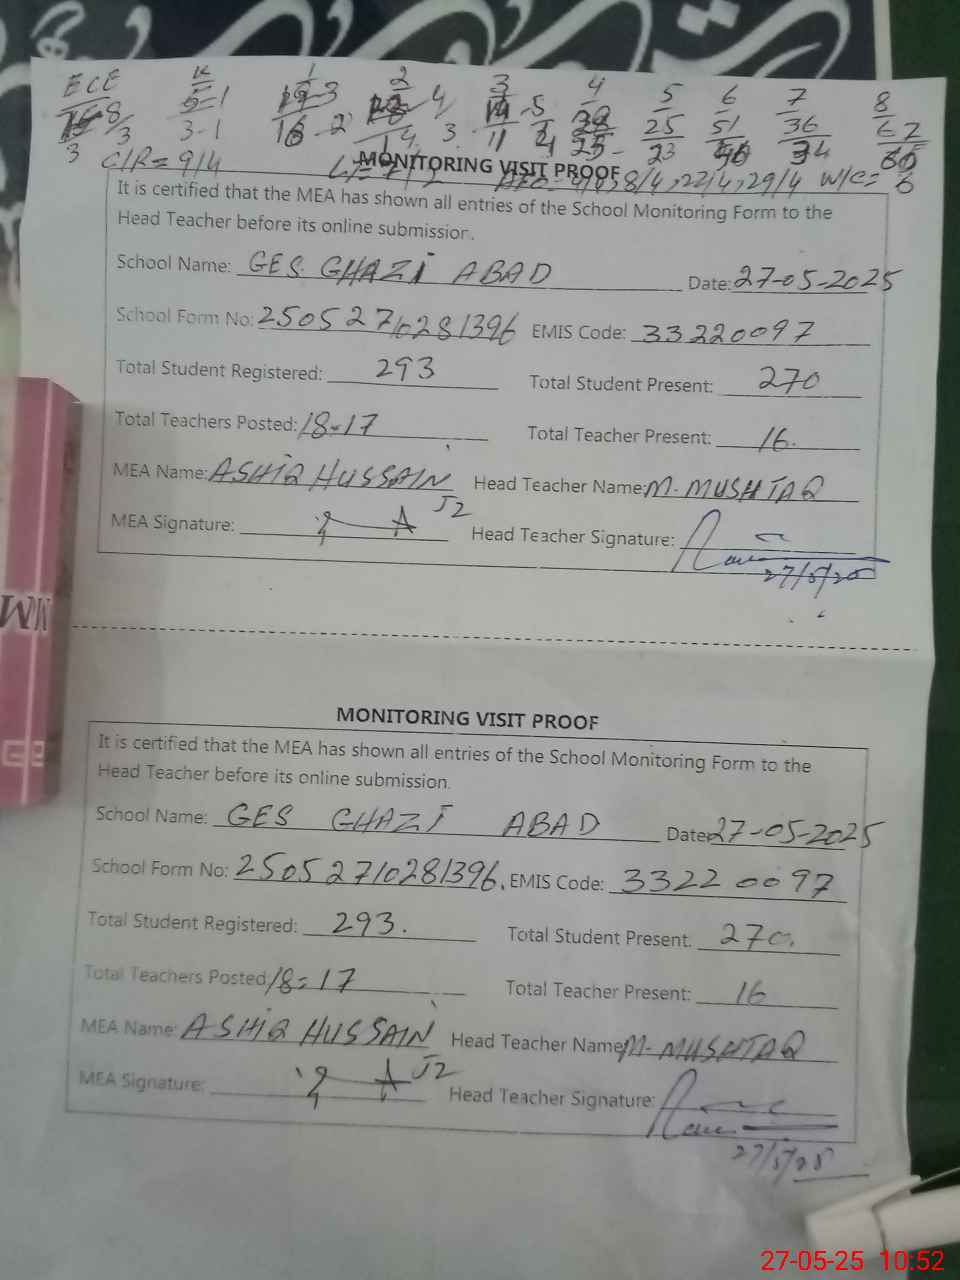 ECE K 1 2 3 4 5 6 7 8
3 3-1 16 11 25 23 34
C/R = 9/4 8/4, 22/4, 29/4 W/C= 6
MONITORING VISIT PROOF
It is certified that the MEA has shown all entries of the School Monitoring Form to the
Head Teacher before its online submission.
School Name: GES GHAZI ABAD Date: 27-05-2025
School Form No: 25052710281396 EMIS Code: 33220097
Total Student Registered: 293 Total Student Present: 270
Total Teachers Posted: 18-17 Total Teacher Present: 16.
MEA Name: ASHIQ HUSSAIN Head Teacher Name: M. MUSHTAQ
J2
MEA Signature: Head Teacher Signature:
27/5/25
MONITORING VISIT PROOF
It is certified that the MEA has shown all entries of the School Monitoring Form to the
Head Teacher before its online submission.
School Name: GES GHAZI ABAD Date: 27-05-2025
School Form No: 25052710281396. EMIS Code: 33220097
Total Student Registered: 293. Total Student Present: 270.
Total Teachers Posted: 18=17 Total Teacher Present: 16
MEA Name: ASHIQ HUSSAIN Head Teacher Name: M. MUSHTAQ
J2
MEA Signature: Head Teacher Signature:
27/5/25
27-05-25 10:52